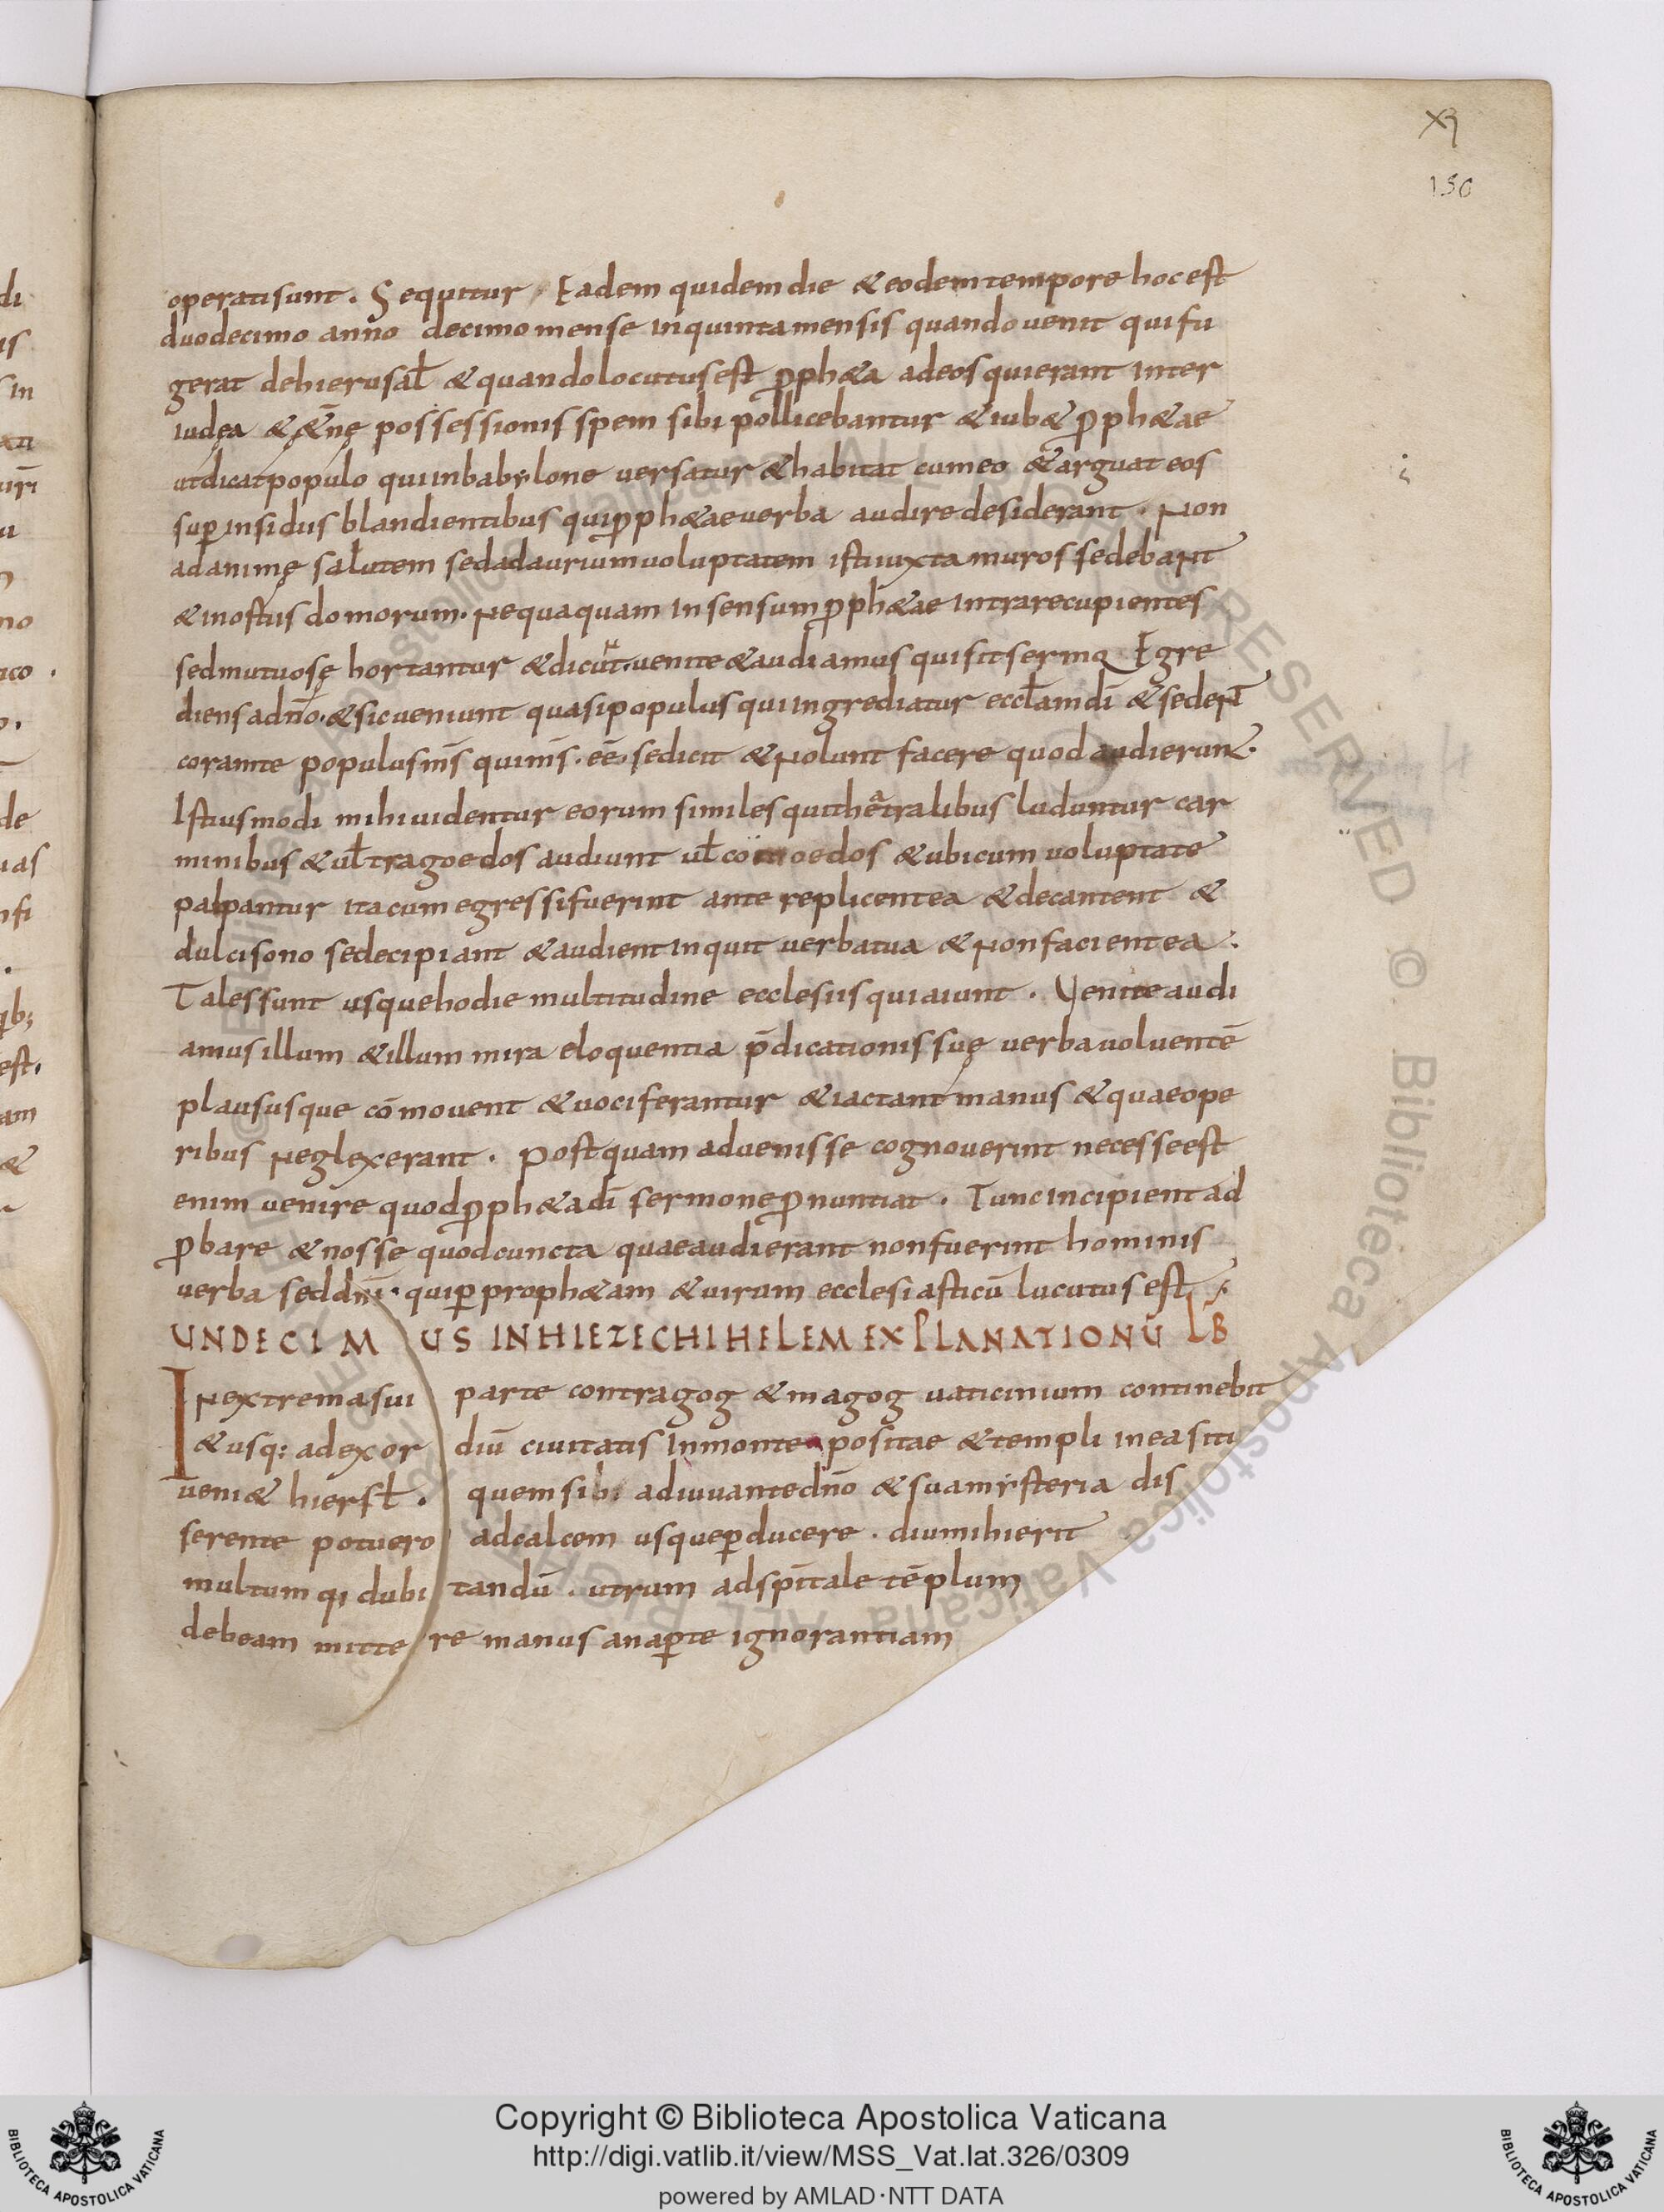 XI
150
operatisunt. Sequitur. Eadem quidem die & eodem tempore hoc est
duodecimo anno decimo mense inquinta mensis quando uenit qui fu
gerat dehierusal̄ & quando locutus est ꝓph&a adeos qui erant inter
iudęa & &̄nę possessionis spem sibi pollicebantur & iub& ꝓph&ae
ut dicat populo qui inbabẏlone uersatur & habitat cumeo & arguat eos
suꝑ insidiis blandientibus qui ꝓph&ae uerba audire desiderant. Non
ad animę salutem sed ad aurium uoluptatem isti iuxta muros sedebant
& inostiis domorum. Nequaquam in sensum ꝓph&ae intrare cupientes
sed mutuo sę hortantur & dicut. uenite & audiamus qui sit sermo Egre
diens adn̄o. & sic ueniunt quasi populus qui ingrediatur eccl̄am dī & seder̄t
coramte populus m̄s qui n̄s. eē. se dicit & nolunt facere quod audierun&.
Istiusmodi mihi uidentur eorum similes qui theatralibus luduntur car
minibus & ul̄ tragoedos audiunt ul̄ comoedos & ubicum uoluptate
palpantur ita cum egressi fuerint ante replicent ea & decantent &
dulcisono se decipiant & audient inquit uerba tua & non facient ea.
Tales sunt usque hodie multitudine ecclesiis qui aiunt. Venite audi
amus illum & illum mira eloquentia p̄dicationis suę uerba uoluentē
plaususque cōmouent & uociferantur & iactant manus & quae ope
ribus neglexerant. Postquam aduenisse cognouerint necesse est
enim uenire quod ꝓph&a dī sermone ꝓnuntiat. Tunc incipient ad
ꝓbare & nosse quod cuncta quae audierant non fuerint hominis
uerba sed dn̄i. qui ꝑ proph&am & uirum ecclesiasticū lucutus est.
UNDECIMUS IN HIEZECHIHELEM EXPLANATIONŪ LB
IN extrema sui parte contra gog & magog uaticinium continebit
& usq; ad exordiū ciuitatis in monte positae & templi in ea siti
ueni& hiersl̄. quem sibi adiuuante dn̄o & sua mẏsteria dis
serente potuero ad calcem usque ꝑducere. diu mihi erit
multum qi dubitandū. utrum ad sp̄itale tēplum
debeam mittere manus an aꝑte ignorantiam
Copyright © Biblioteca Apostolica Vaticana
http://digi.vatlib.it/view/MSS_Vat.lat.326/0309
powered by AMLAD·NTT DATA
BIBLIOTECA APOSTOLICA VATICANA
BIBLIOTECA APOSTOLICA VATICANA